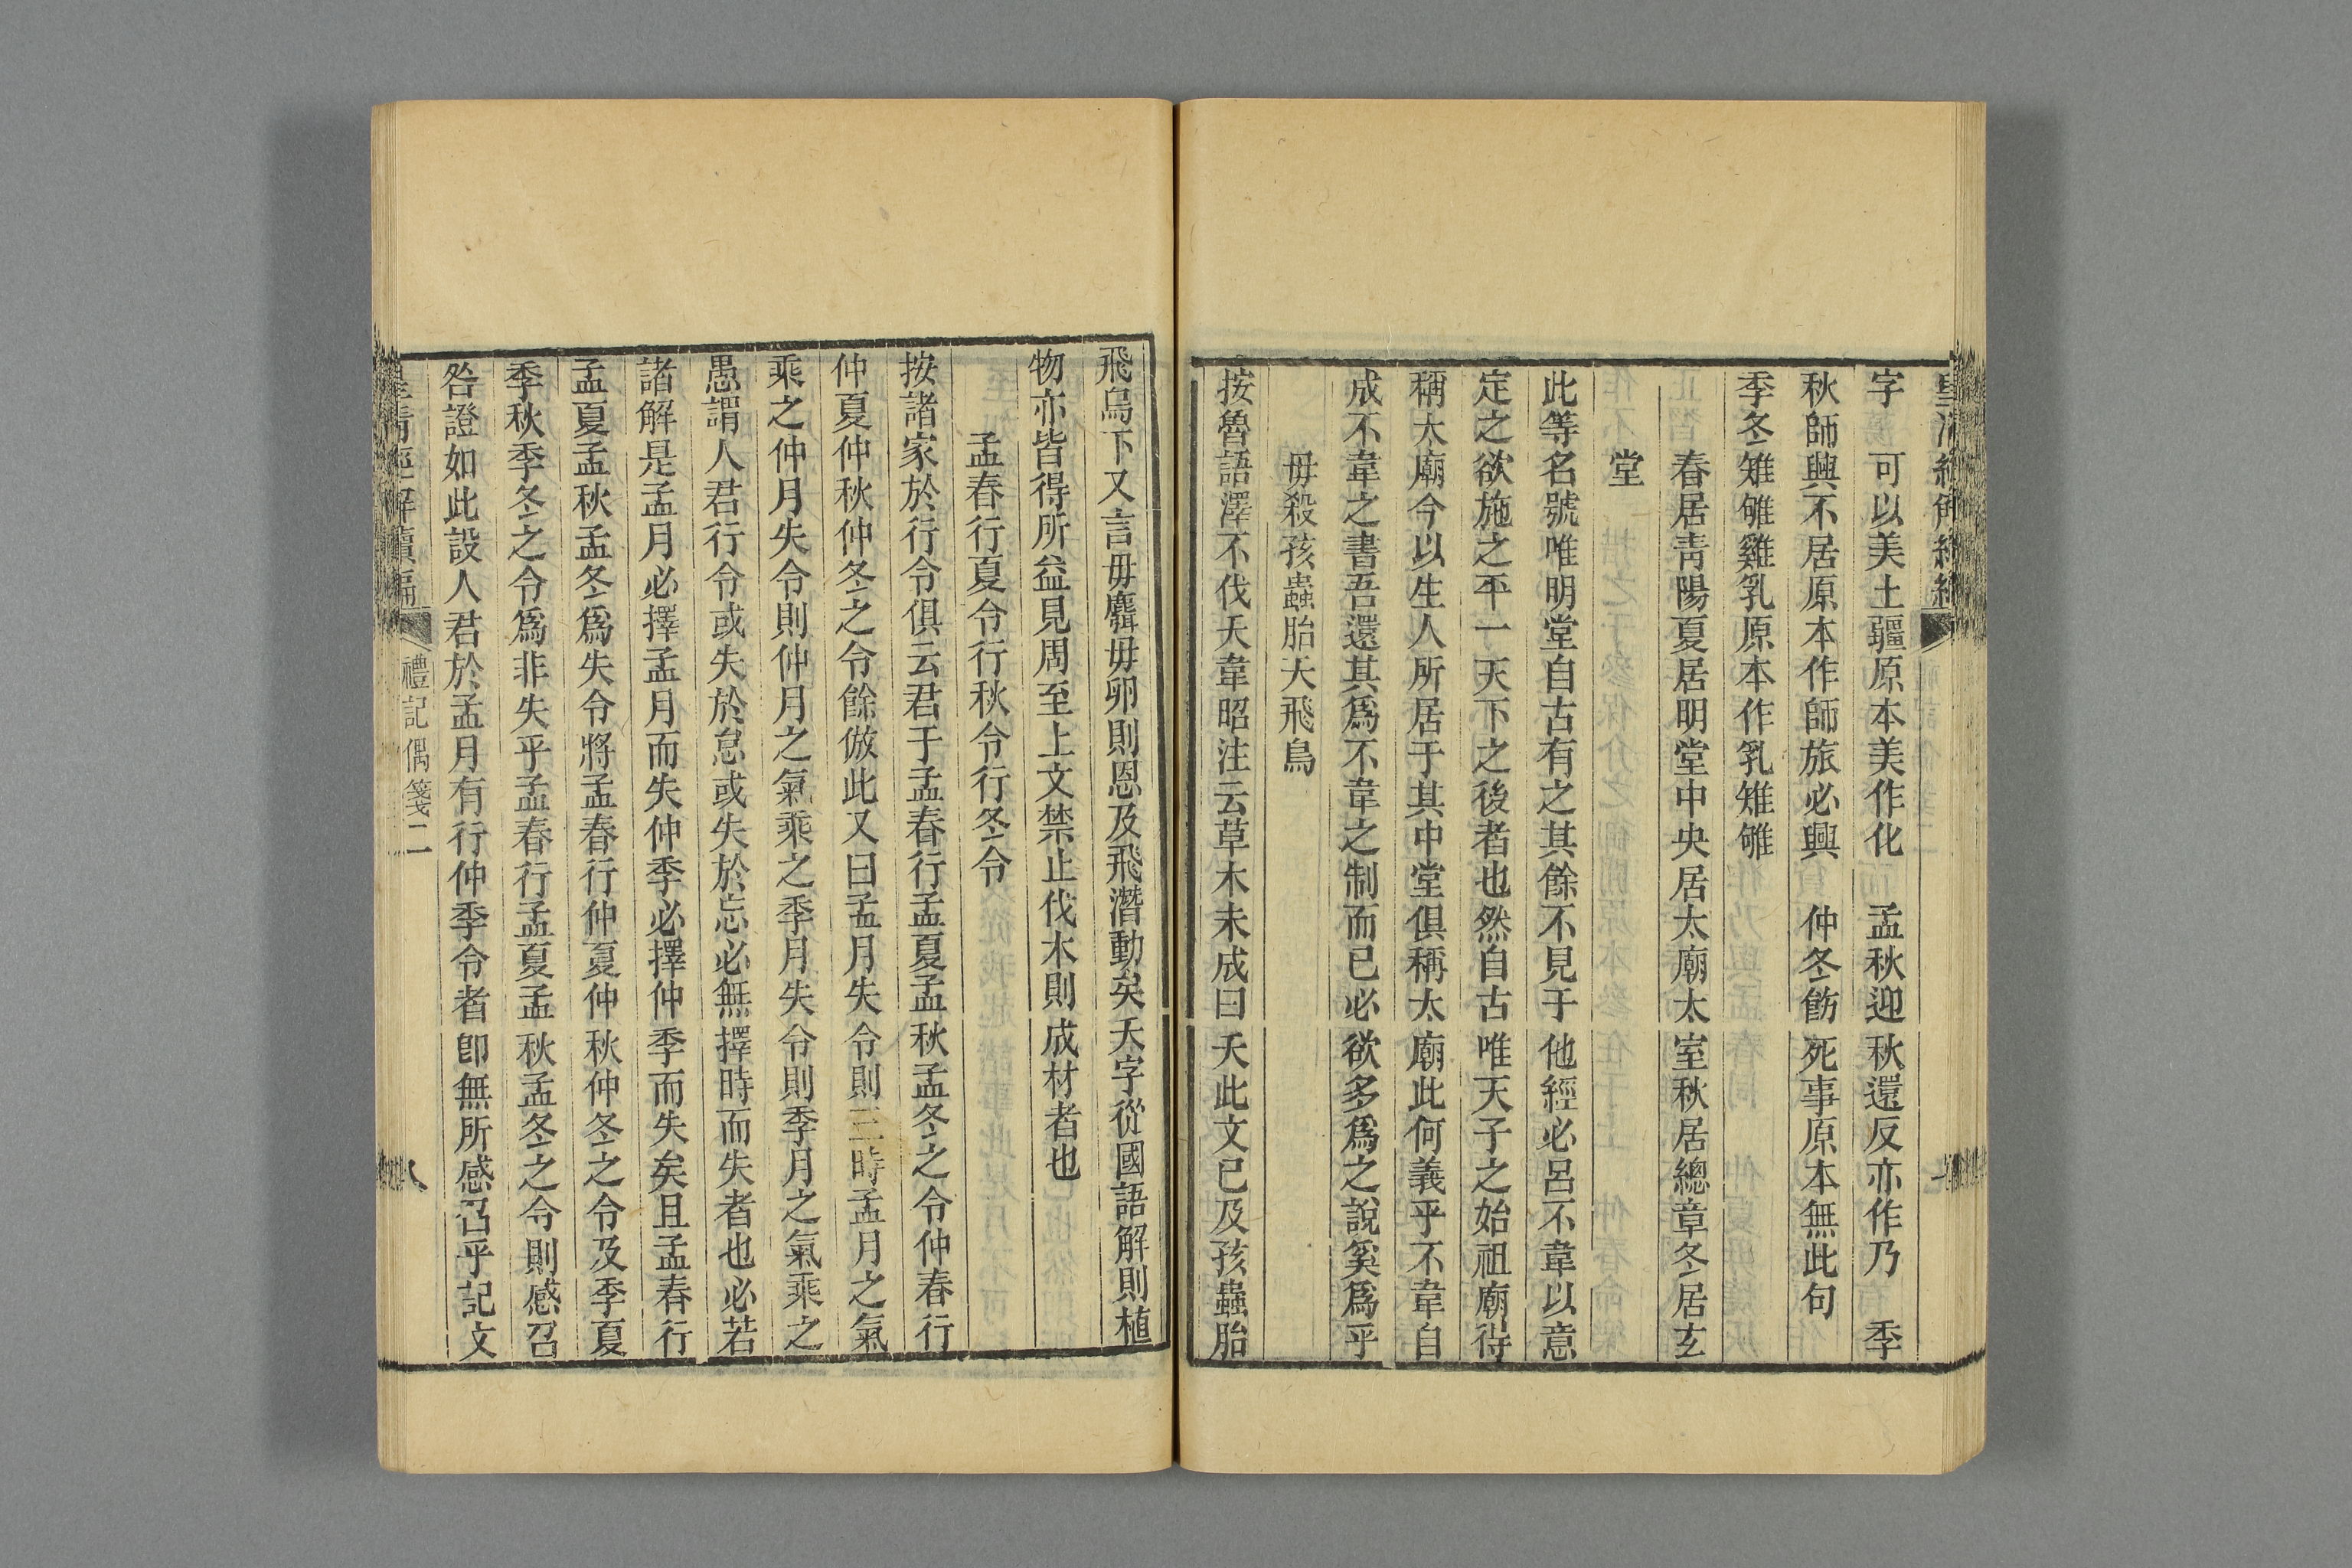 字　可以美土疆原本美作化　孟秋迎秋還反亦作乃　季
秋師興不居原本作師旅必興　仲冬飭死事原本無此句
季冬雉雊雞乳原本作乳雉雊
春居青陽夏居明堂中央居太廟太室秋居總章冬居玄
堂
此等名號唯明堂自古有之其餘不見于他經必呂不韋以意
定之欲施之平一天下之後者也然自古唯天子之始祖廟得
稱太廟今以生人所居于其中堂俱稱太廟此何義乎不韋自
成不韋之書吾還其爲不韋之制而已必欲多爲之說奚爲乎
毋殺孩蟲胎夭飛鳥
按魯語澤不伐夭韋昭注云草木未成曰夭此文已及孩蟲胎
飛鳥下又言毋麛毋卵則恩及飛潛動矣夭字從國語解則植
物亦皆得所益見周至上文禁止伐木則成材者也
孟春行夏令行秋令行冬令
按諸家於行令俱云君于孟春行孟夏孟秋孟冬之令仲春行
仲夏仲秋仲冬之令餘倣此又曰孟月失令則三時孟月之氣
乘之仲月失令則仲月之氣乘之季月失令則季月之氣乘之
愚謂人君行令或失於怠或失於忘必無擇時而失者也必若
諸解是孟月必擇孟月而失仲季必擇仲季而失矣且孟春行
孟夏孟秋孟冬爲失令將孟春行仲夏仲秋仲冬之令及季夏
季秋季冬之令爲非失乎孟春行孟夏孟秋孟冬之令則感召
咎證如此設人君於孟月有行仲季令者卽無所感召乎記文
皇清經解續編　禮記偶箋二　八